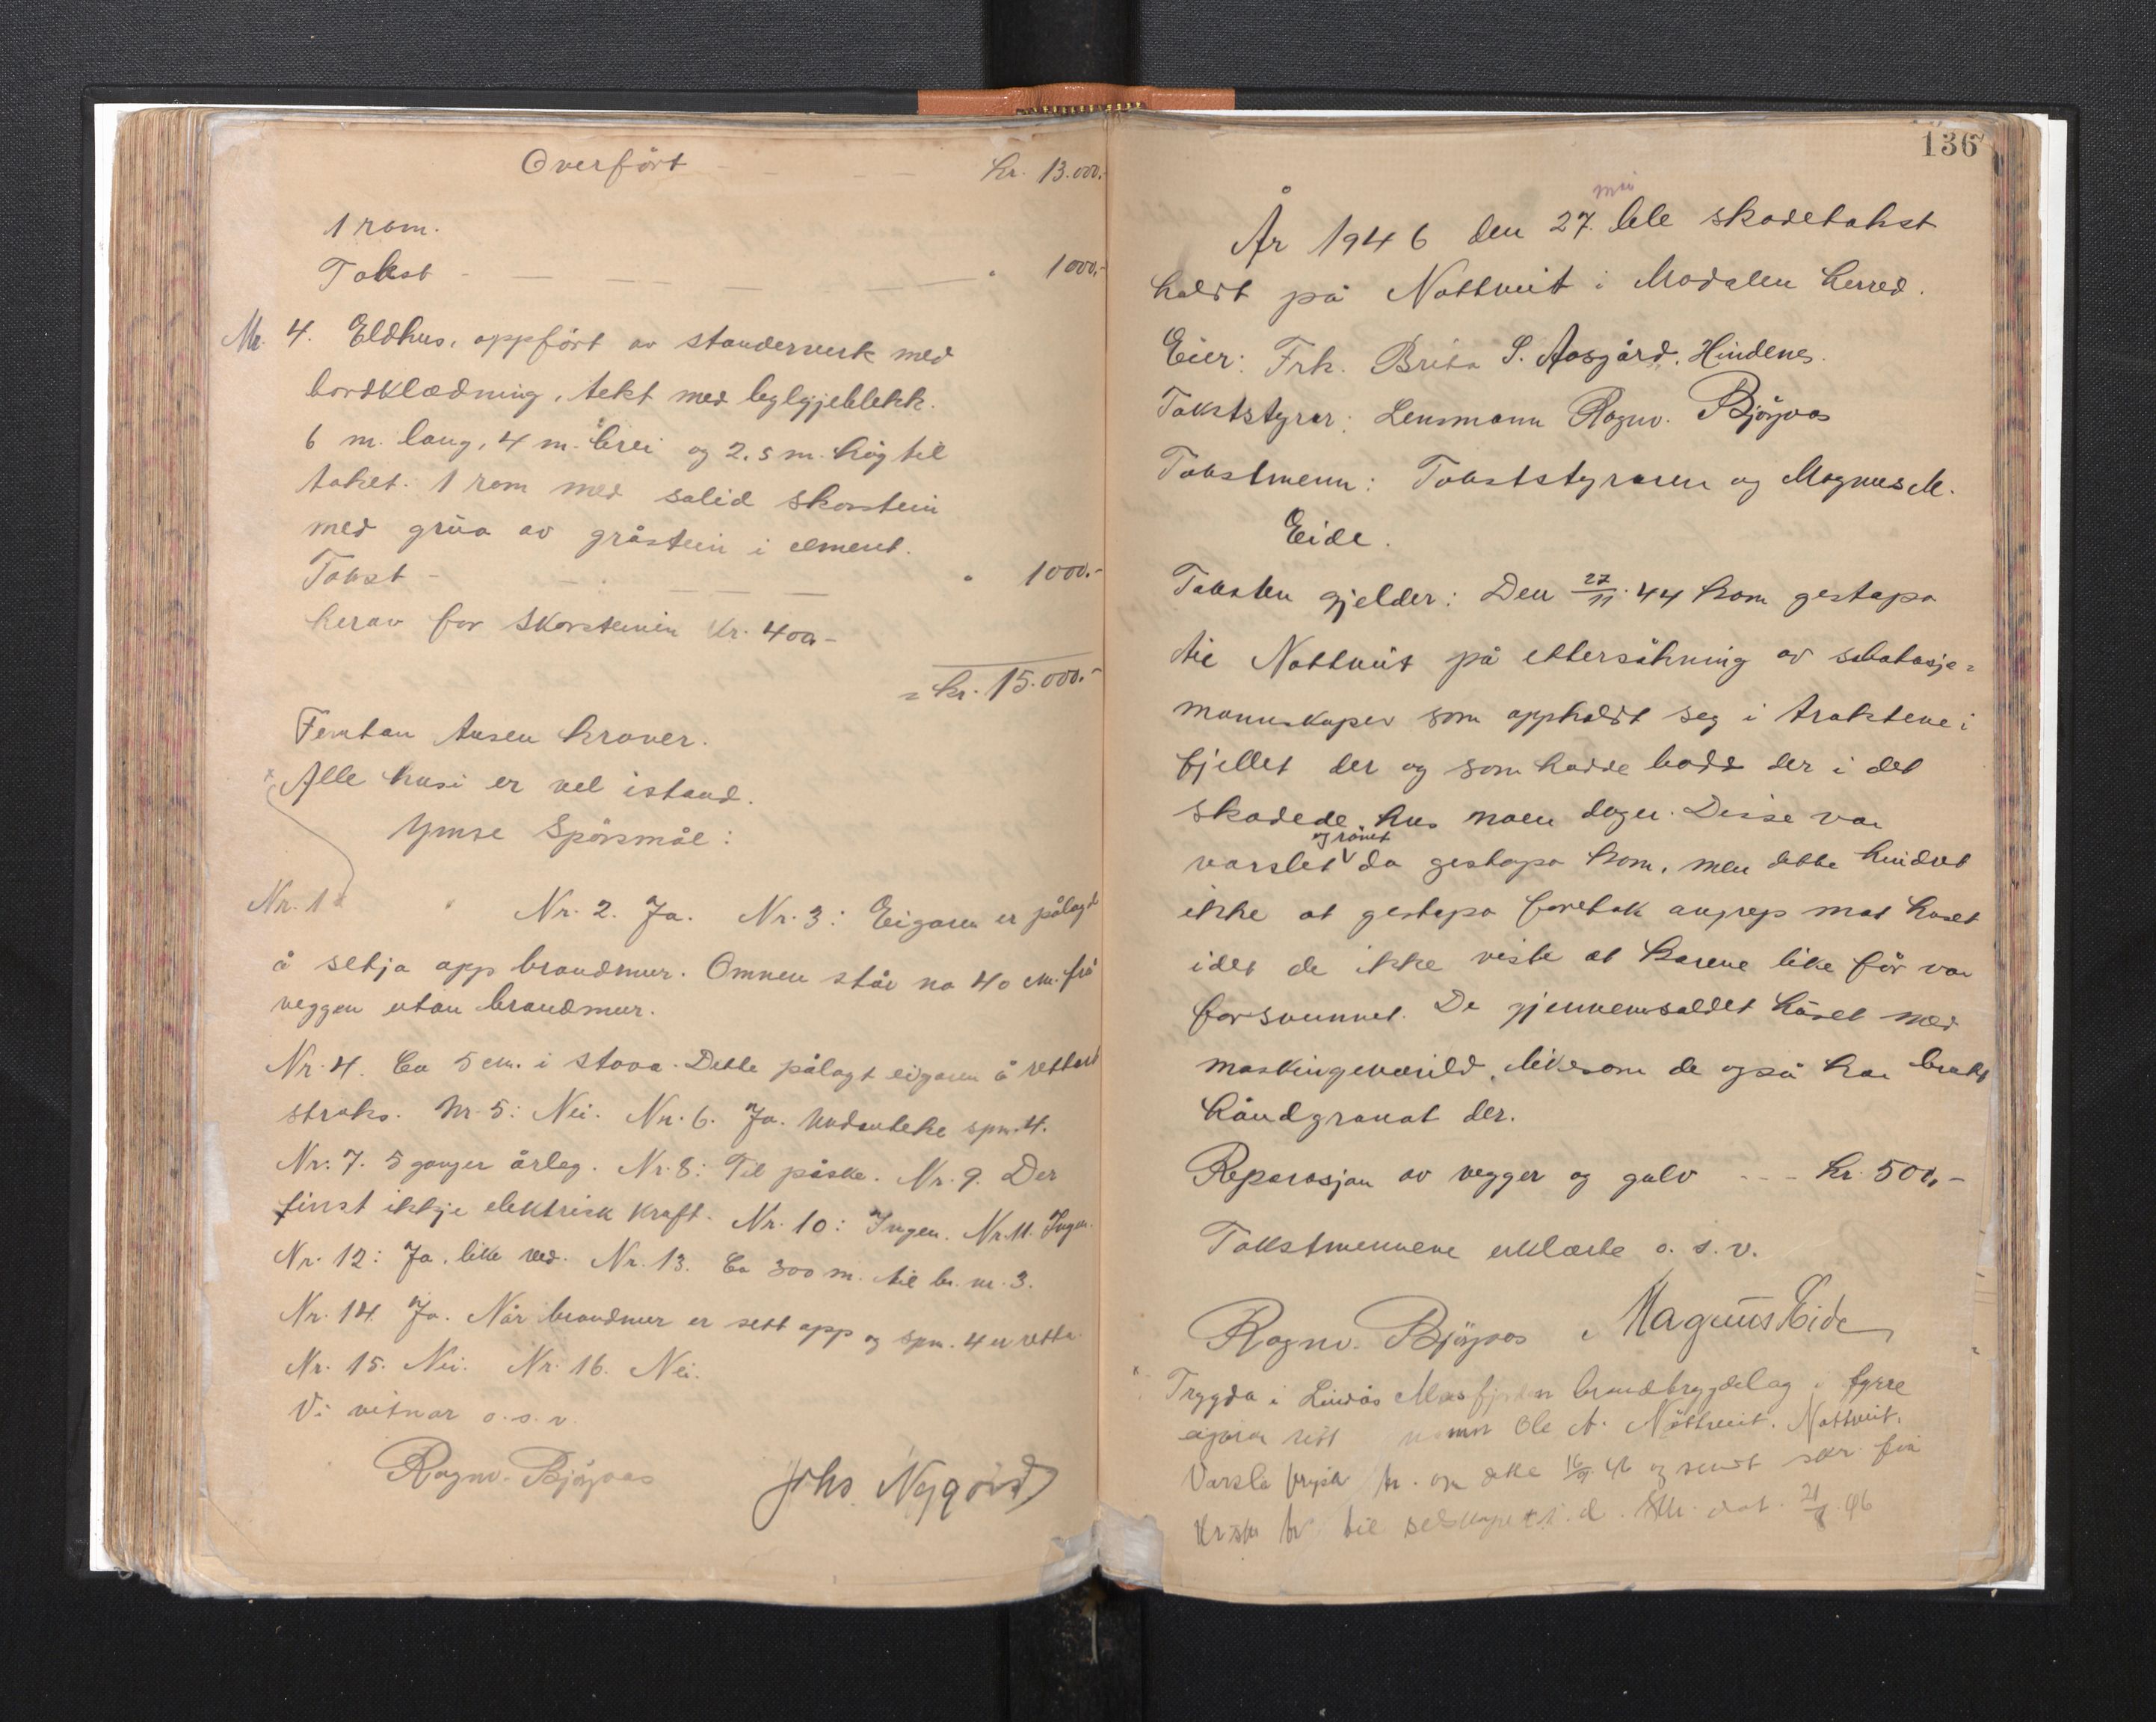 Overført - - - kr. 13.000.
1 rom.
Takst - - - - - - " 1000.-
Nr. 4. Eldhus, oppført av standerverk med
bordklædning, tekt med bylgjeblekk.
6 m. lang, 4 m. brei og 2.5 m. høg til
taket. 1 rom med solid skorstein
med grua av gråstein i cement.
Takst - - - - - " 1000.-
herav for skorsteinen kr. 400.-
= kr. 15.000.-
Femtan tusen kroner.
x Alle husi er vel istand.
Ymse Spørsmål:
Nr. 1 x Nr. 2. Ja. Nr. 3: Eigaren er pålagd
å setja opp brandmur. Omnen står no 40 cm. frå
veggen utan brandmur.
Nr. 4. Ca 5 cm. i stova. Dette pålagt eigaren å retta
straks. Nr. 5: Nei. Nr. 6. Ja. Undanteke spm. 4.
Nr. 7. 5 ganger årleg. Nr. 8: Til påske. Nr. 9. Der
finst ikkje elektrisk kraft. Nr. 10: Ingen. Nr. 11. Ingen.
Nr. 12: Ja, like ved. Nr. 13. Ca 300 m. til br. nr. 3.
Nr. 14. Ja. Når brandmur er sett opp og spm. 4 er retta.
Nr. 15. Nei. Nr. 16. Nei.
Vi vitnar o.s.v.
Ragnv. Bjørgaas Johs. Nygård
136
mai
År 1946 den 27. ble skadetakst
holdt på Nottveit i Modalen herred.
Eier: Frk. Brita S. Aasgård, Hindenes.
Takststyrer: Lensmann Ragnv. Bjørgaas
Takstmenn: Takststyreren og Magnus M.
Eide.
Taksten gjelder: Den 27/11. 44 kom gestapo
til Nottveit på ettersøkning av sabotasje=
mannskaper som oppholdt seg i traktene i
fjellet der og som hadde bodd der i det
skadede hus noen dager. Disse var
og rømt
varslet da gestapo kom, men dette hindret
ikke at gestapo foretok angrep mot huset
idet de ikke viste at karene like før var
forsvunnet. De gjennemsoldet huset med
maskingeværild, likesom de også har brukt
håndgranat der.
Reparasjon av vegger og golv - - - kr. 500,-
Takstmennene erklærte o.s.v.
Ragnv. Bjørgaas Magnus Eide
x Trygda i Lindås Masfjorden brandtrygdelag i fyrre
eigaren sitt namn Ole A. Nøttveit. Nottveit.
Varsla om dette 16/9. 46 og sendt
til selskapet 21/ 46